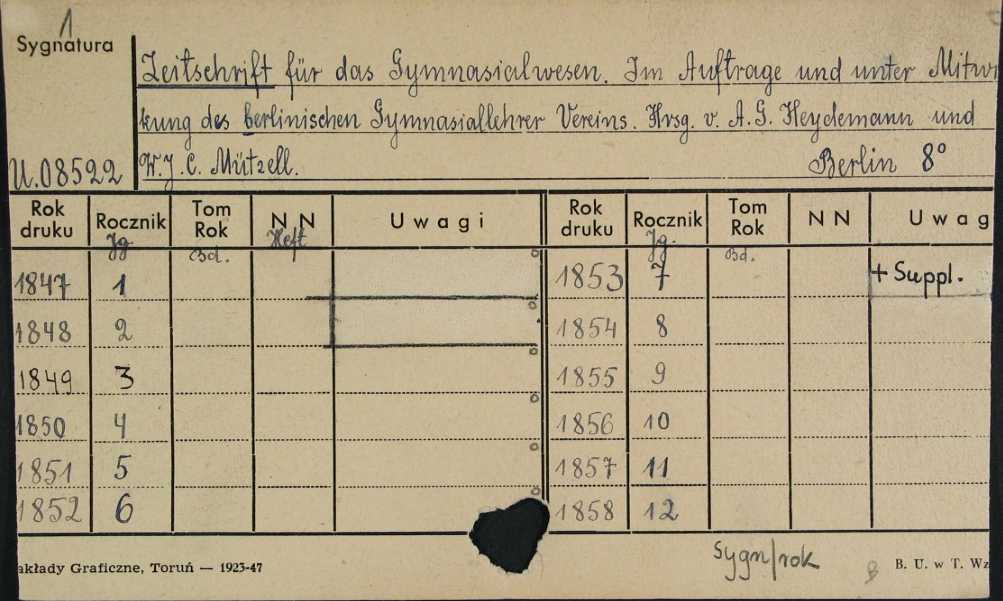 1
Sygnatura
Zeitschrift für das Gymnasialwesen. Im Auftrage und unter Mitwir
kung des berlinischen Gymnasiallehrer Vereins. Hrsg. v. A.G. Heydemann und
U.08522 W.J.C. Mützell. Berlin 8°
Rok druku Rocznik Tom Rok N N Uwagi Rok druku Rocznik Tom Rok N N Uwag
Jg Bd. Heft Jg. Bd.
1847 1 1853 7 + Suppl.
1848 2 1854 8
1849 3 1855 9
1850 4 1856 10
1851 5 1857 11
1852 6 1858 12
sygn/rok
akłady Graficzne, Toruń — 1923-47 B. U. w T. Wz